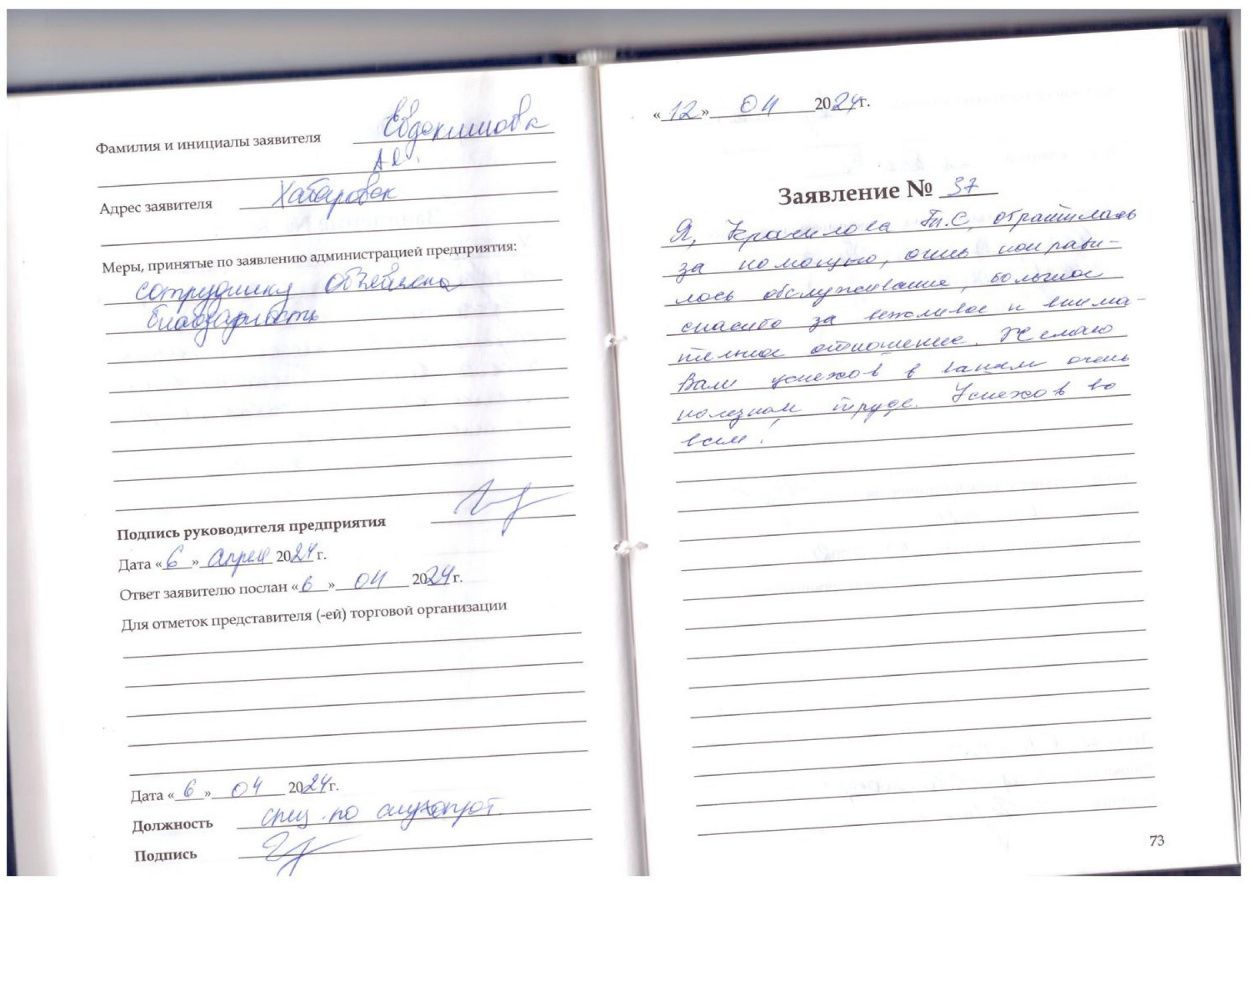 Фамилия и инициалы заявителя Евдокимова
А.
Адрес заявителя Хабаровск
Меры, принятые по заявлению администрацией предприятия:
сотруднику объявлена
благодарность
Подпись руководителя предприятия
Дата «6» апреля 2024г.
Ответ заявителю послан «6» 04 2024г.
Для отметок представителя (-ей) торговой организации
Дата «6» 04 2024г.
Должность спец. по слухопрот.
Подпись
«12» 04 2024г.
Заявление № 37
Я, Красилова Т.С, обратилась
за помощью, очень понрави-
лось обслуживание, большое
спасибо за вежливое и внима-
тельное отношение. Желаю
Вам успехов в вашем очень
полезном труде. Успехов во
всем!
73